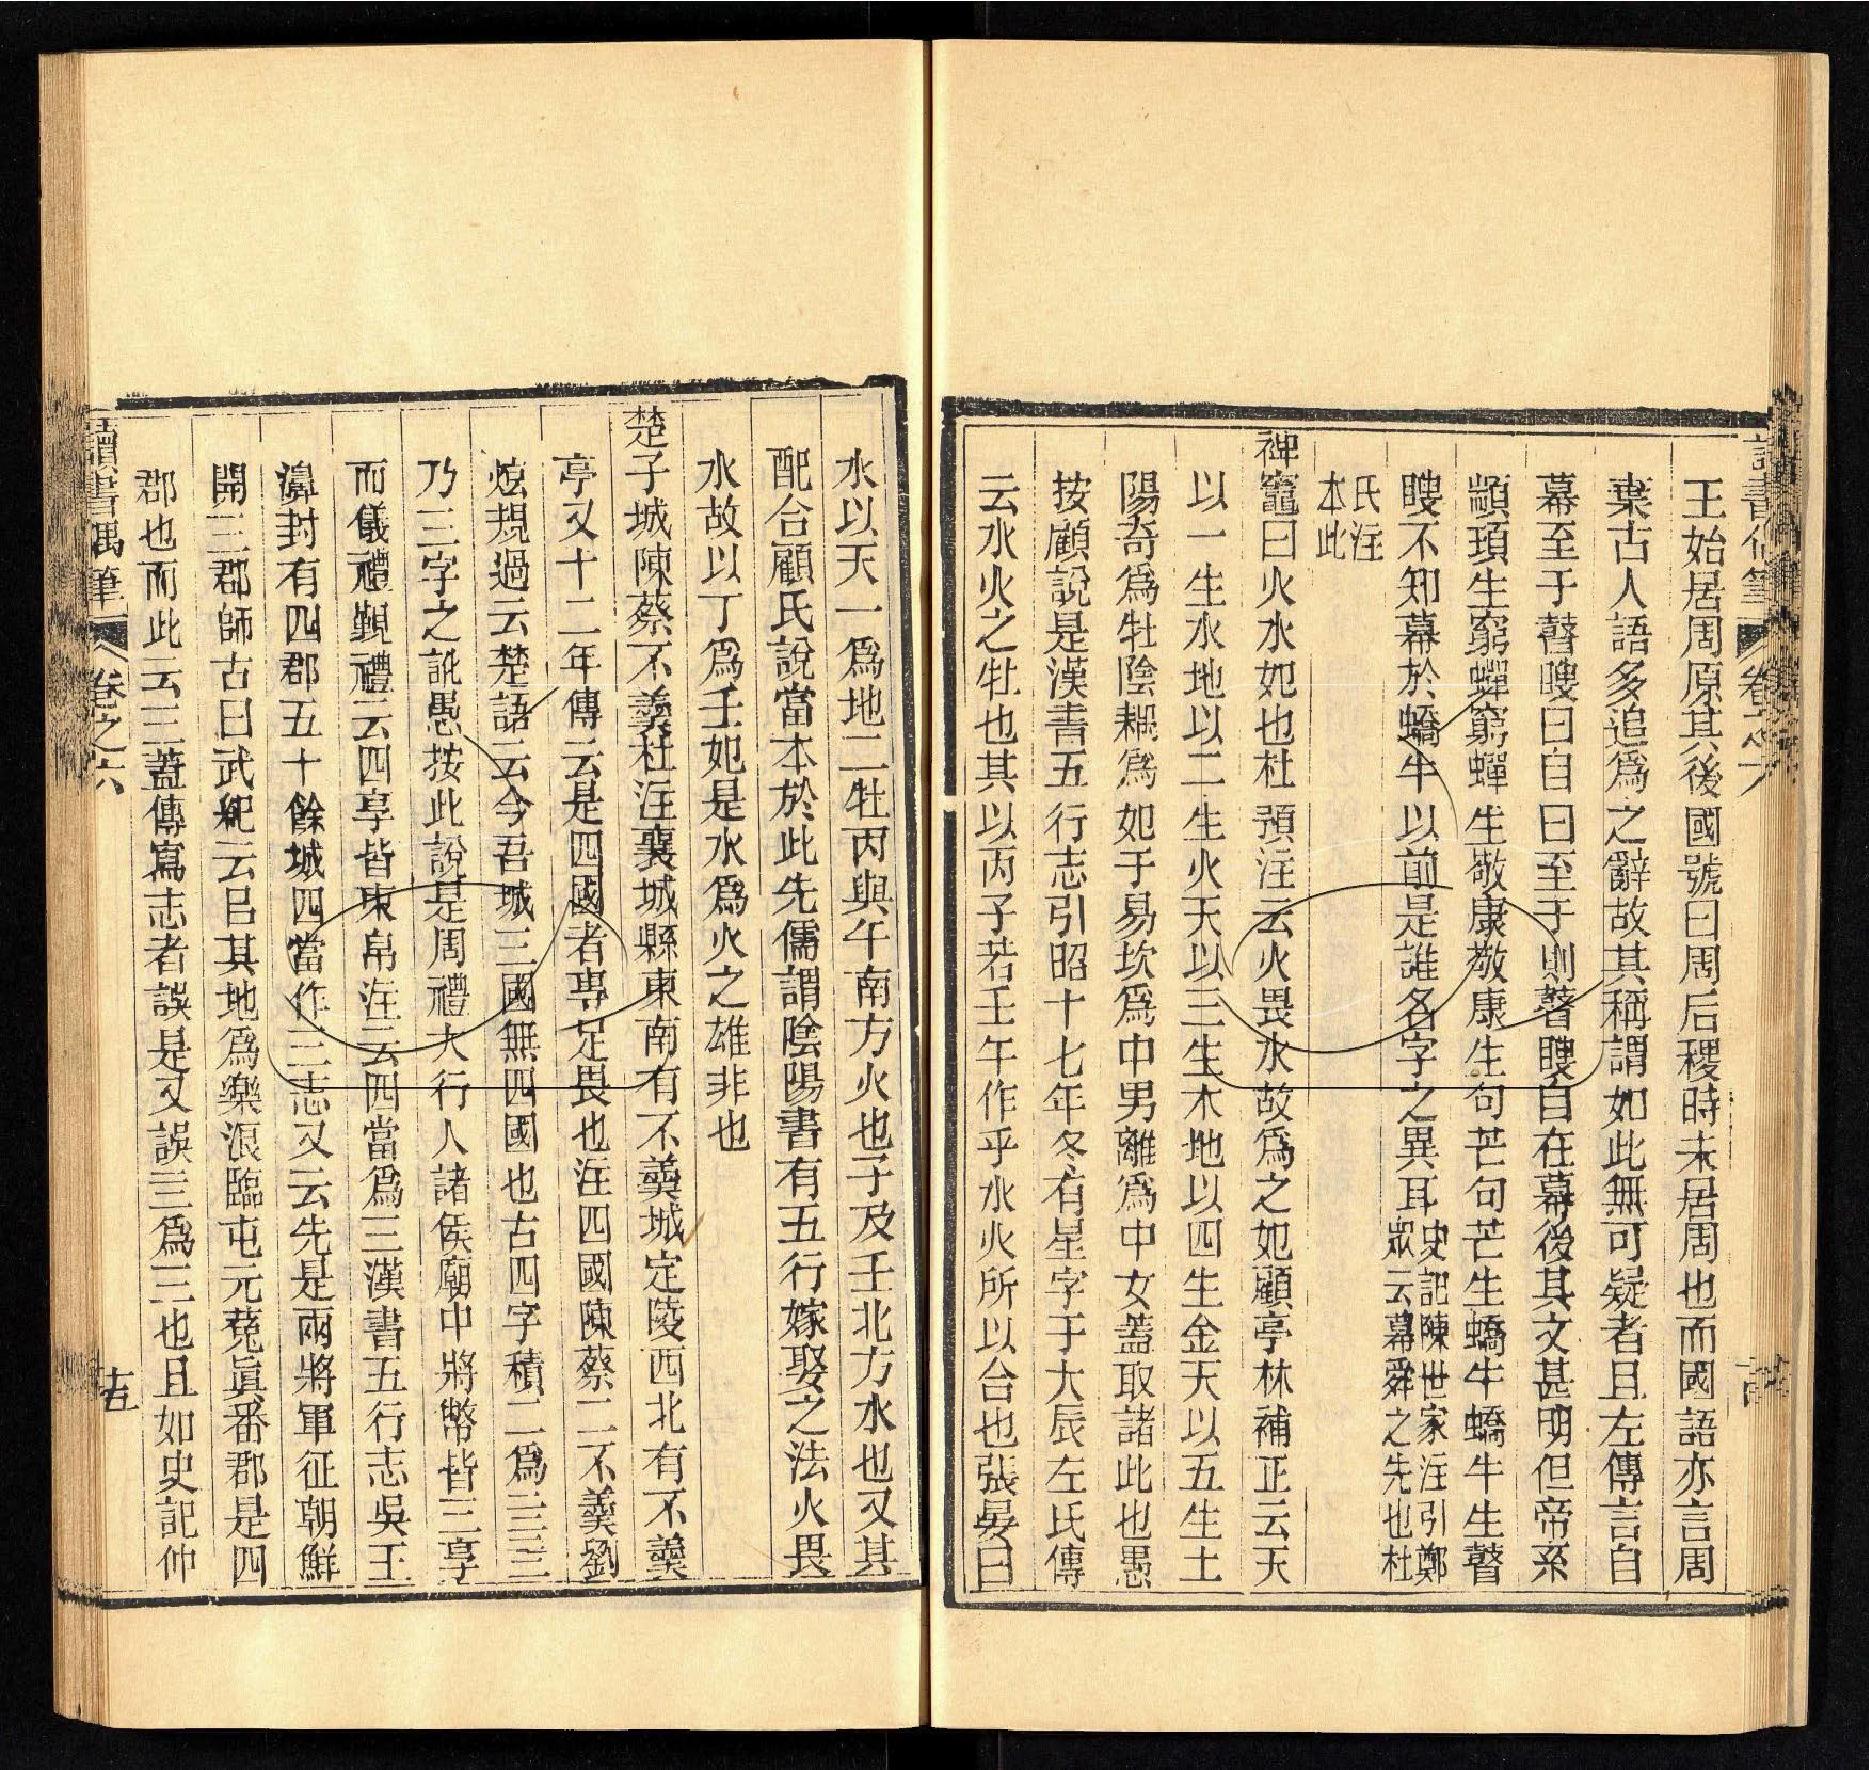 王始居周原其後國號曰周后稷時未居周也而國語亦言周
棄古人語多追爲之辭故其稱謂如此無可疑者且左傳言自
幕至于瞽瞍曰自曰至于則瞽瞍自在幕後其文甚明但帝系
顓頊生窮蟬窮蟬生敬康敬康生句芒句芒生蟜牛蟜牛生瞽
瞍不知幕於蟜牛以前是誰名字之異耳史記陳世家注引鄭
眾云幕舜之先也杜
氏注
本此
裨竈曰火水妃也杜預注云火畏水故爲之妃顧亭林補正云天
以一生水地以二生火天以三生木地以四生金天以五生土
陽奇爲牡陰耦爲妃于易坎爲中男離爲中女蓋取諸此也愚
按顧說是漢書五行志引昭十七年冬有星孛于大辰左氏傳
云水火之牡也其以丙子若壬午作乎水火所以合也張晏曰
水以天一爲地二牡丙與午南方火也子及壬北方水也又其
配合顧氏說當本於此先儒謂陰陽書有五行嫁娶之法火畏
水故以丁爲壬妃是水爲火之雄非也
楚子城陳蔡不羹杜注襄城縣東南有不羹城定陵西北有不羹
亭又十二年傳云是四國者專足畏也注四國陳蔡二不羹劉
炫規過云楚語云今吾城三國無四國也古四字積二爲亖三
乃三字之訛愚按此說是周禮大行人諸侯廟中將幣皆三享
而儀禮覲禮云四享皆束帛注云四當爲三漢書五行志吳王
濞封有四郡五十餘城四當作三志又云先是兩將軍征朝鮮
開三郡師古曰武紀云㠯其地爲樂浪臨屯元菟眞番郡是四
郡也而此云三蓋傳寫志者誤是又誤亖爲三也且如史記仲
讀書偶筆
卷之六
十五